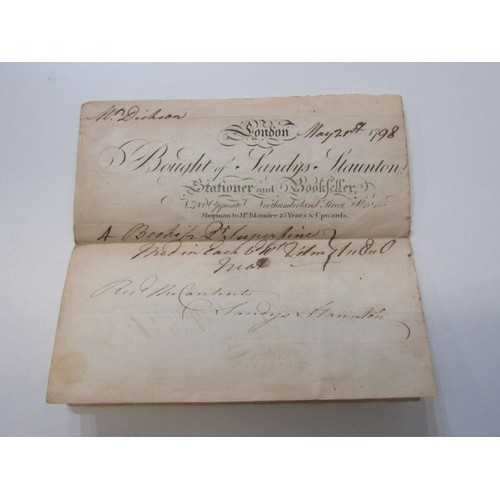 Mr. Dickson
London May 21st 1798
Bought of Sandys Staunton,
Stationer and Bookseller,
Opposite Northumberland Street,
Shopman to Mr. Blamire 25 Years & Upwards.
4 Books Superfine
in each
Neat
Recd. the Contents
Sandys Staunton